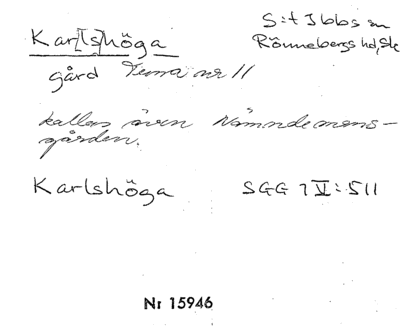 Kar[ls]höga
S:t Ibbs sn
Rönnebergs hd, Sk
gård Tuna nr 11
kallas även Nämndemans-
gården.
Karlshöga SGG 7 V:511
Nr 15946